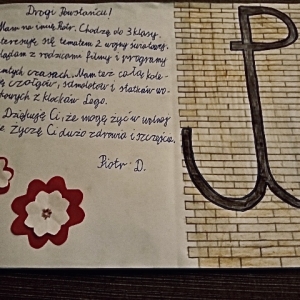 Drogi Powstańcu!
Mam na imię Piotr. Chodzę do 3 klasy.
teresuję się tematem 2 wojny światowej.
lądam z rodzicami filmy i programy
amtych czasach. Mam też całą kole-
ę czołgów, samolotów i statków wo-
kowych z klocków Lego.
Dziękuję Ci, że mogę żyć w wolnej
e życzę Ci dużo zdrowia i szczęścia.
Piotr D.